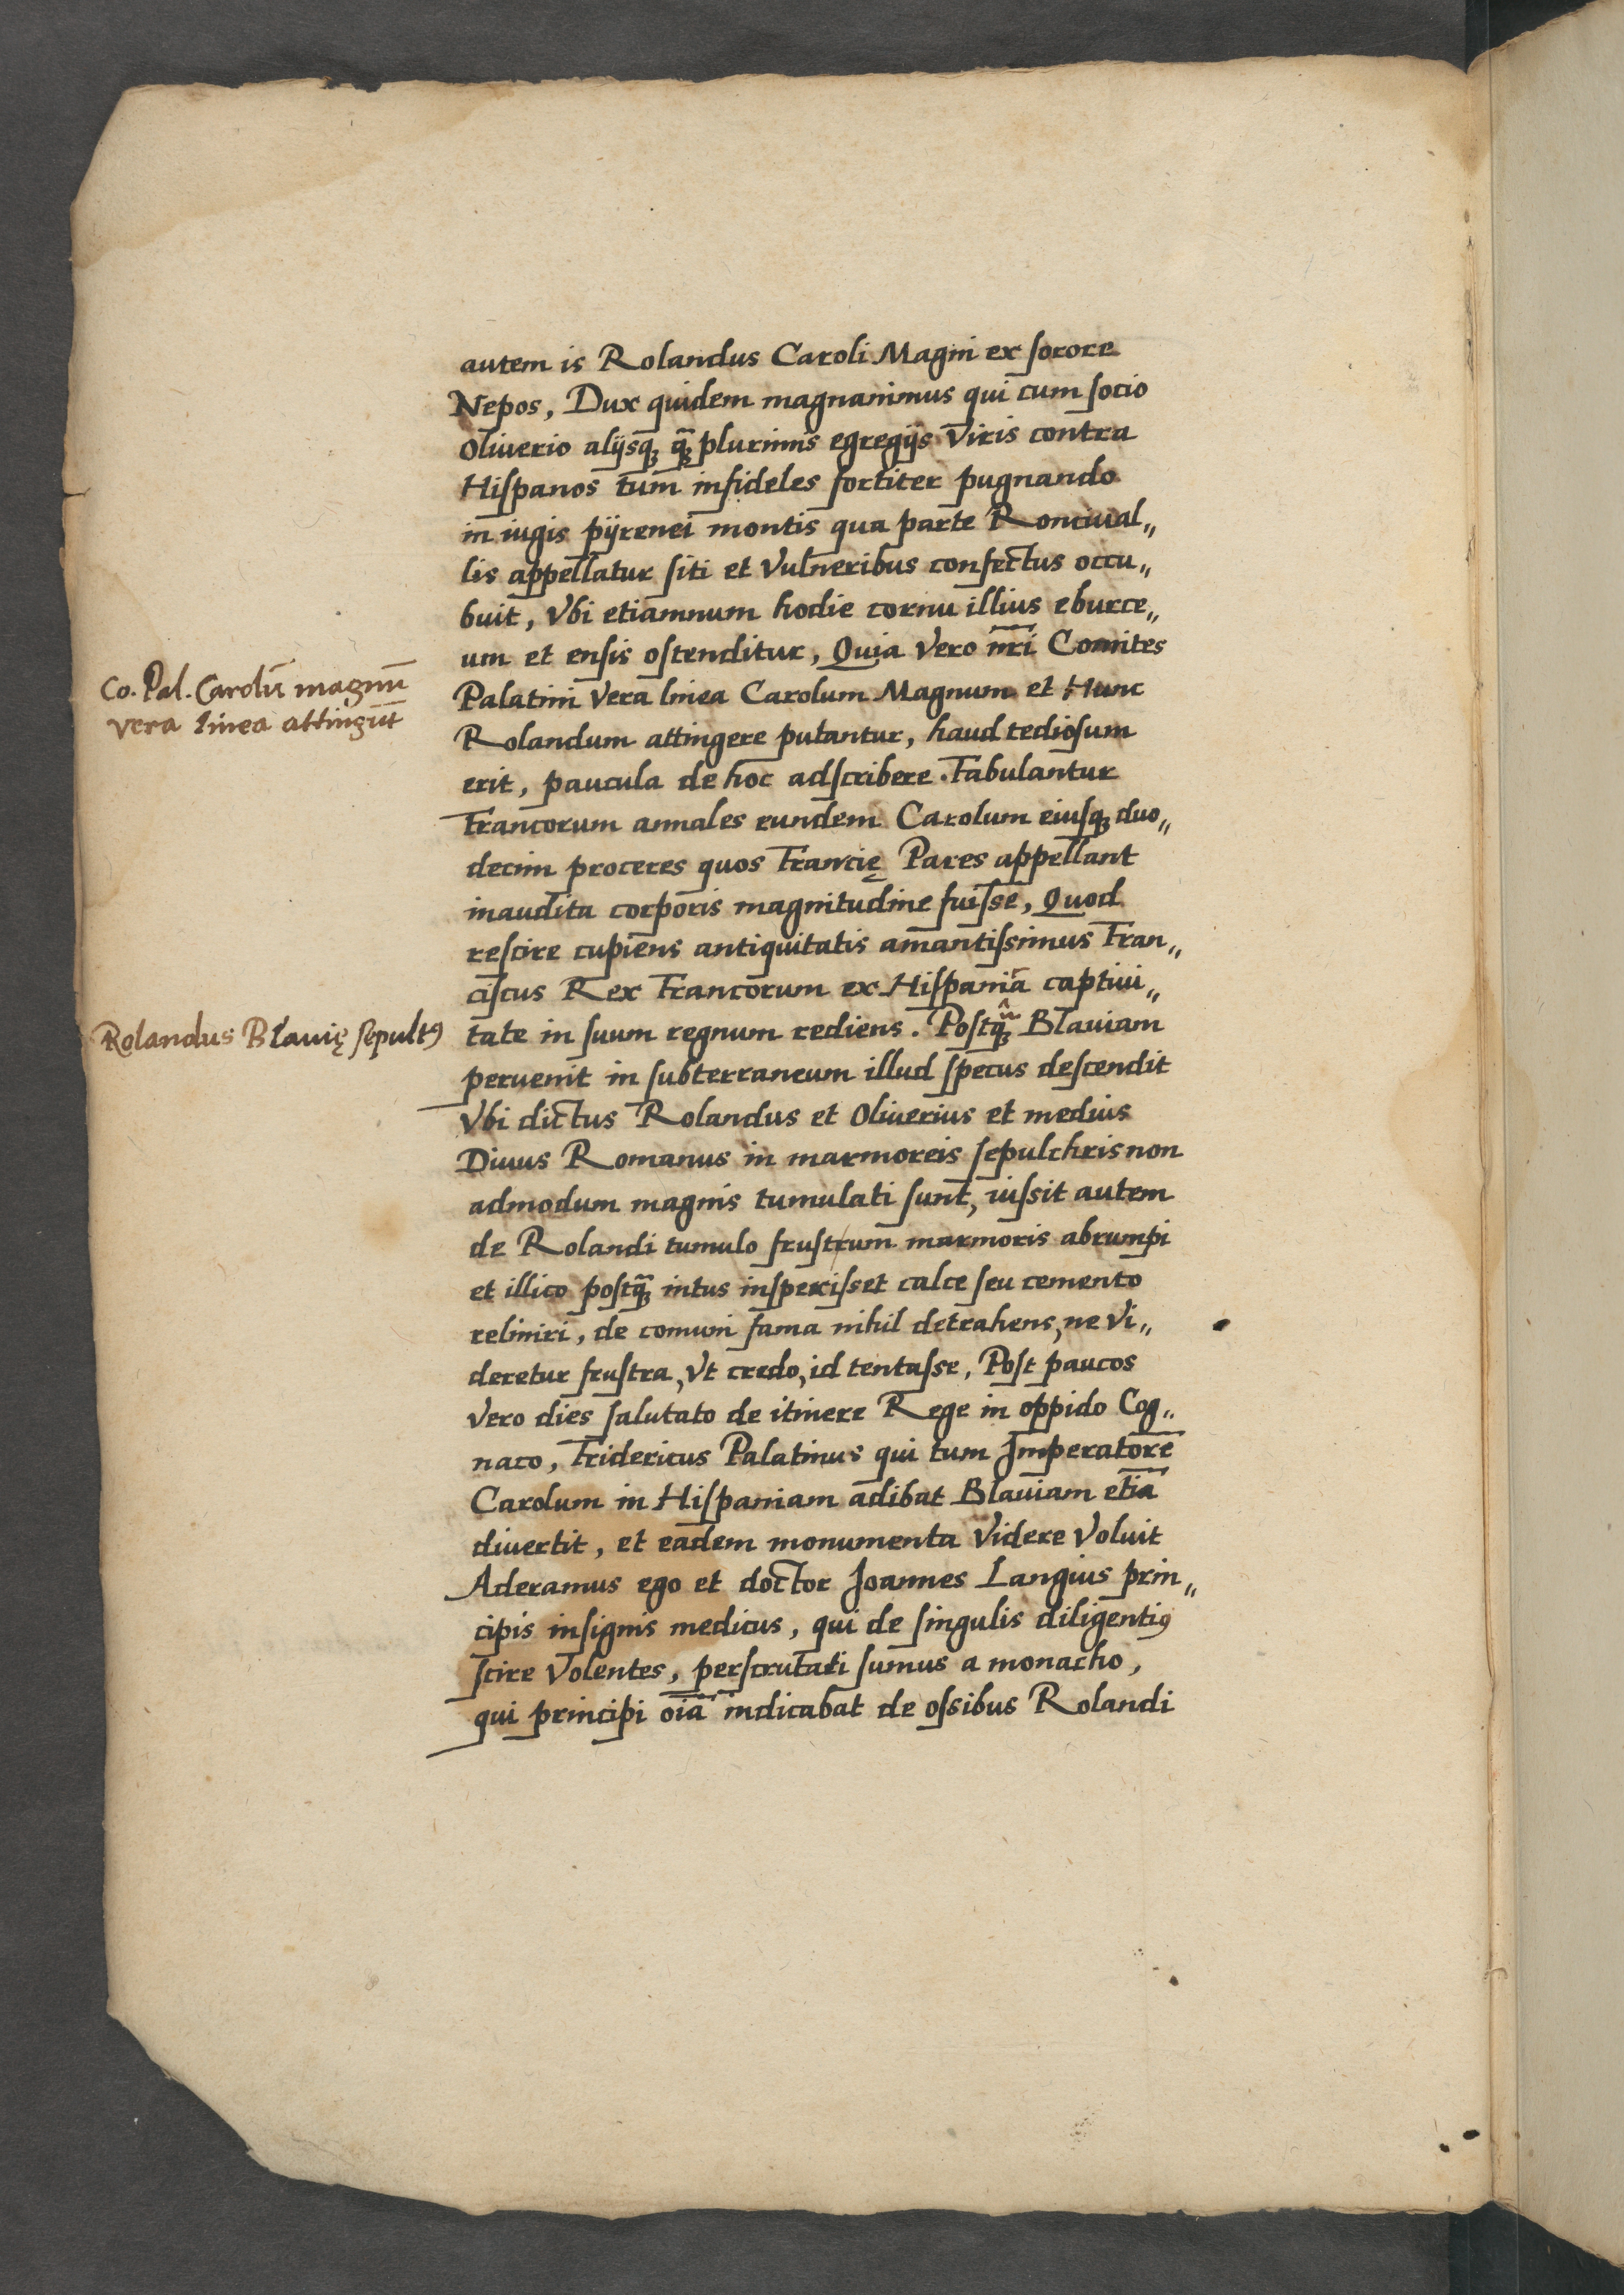 autem is Rolandus Caroli Magni ex sorore
Nepos, Dux quidem magnanimus qui cum socio
Oliverio alijsq̃ꝫ q̃ꝫ plurimis egregijs Viris contra
Hispanos tum infideles fortiter pugnando
in iugis pÿrenei montis qua parte Roncival„
lis appellatur siti et Vulneribus confectus occu„
buit, Vbi etiamnum hodie cornu illius eburce„
um et ensis ostenditur, Quia Vero nr̃i Comites
Co. Pal. Carolũ magnũ
vera linea attingũt
Palatini Vera linea Carolum Magnum et Hunc
Rolandum attingere putantur, haud tediosum
erit, paucula de hoc adscribere. Fabulantur
Francorum annales eundem Carolum eiusqꝫ duo„
decim proceres quos Francię Pares appellant
inaudita corporis magnitudine fuisse, Quod
rescire cupiens antiquitatis amantissimus Fran„
ciscus Rex Francorum ex Hispania captiui„
Rolandus Blavię sepultꝰ
tate in suum regnum rediens. Postq̃ꝫ Blauiam
peruenit in subterraneum illud specus descendit
Vbi dictus Rolandus et Oliuerius et medius
Diuus Romanus in marmoreis sepulchris non
admodum magnis tumulati sunt, iussit autem
de Rolandi tumulo frustrum marmoris abrumpi
et illico postq̃ꝫ intus inspexisset calce seu cemento
reliniri, de comuni fama nihil detrahens, ne Vi„
deretur frustra, Vt credo, id tentasse, Post paucos
Vero dies salutato de itinere Rege in oppido Cog„
naco, Fridericus Palatinus qui tum Imperatorẽ
Carolum in Hispaniam adibat Blauiam etiã
divertit, et eadem monumenta Videre Voluit
Aderamus ego et doctor Joannes Langius prin„
cipis insignis medicus, qui de singulis diligentiꝰ
scire Volentes, perscrutati sumus a monacho,
qui principi oĩa indicabat de ossibus Rolandi